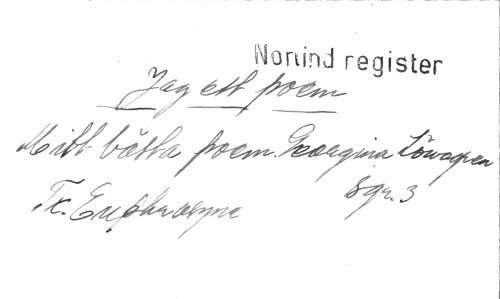 Norlind register
Jag ett poem
Mitt bästa poem. Georgina Löwagren
Tr. Euphrosyne sgr. 3